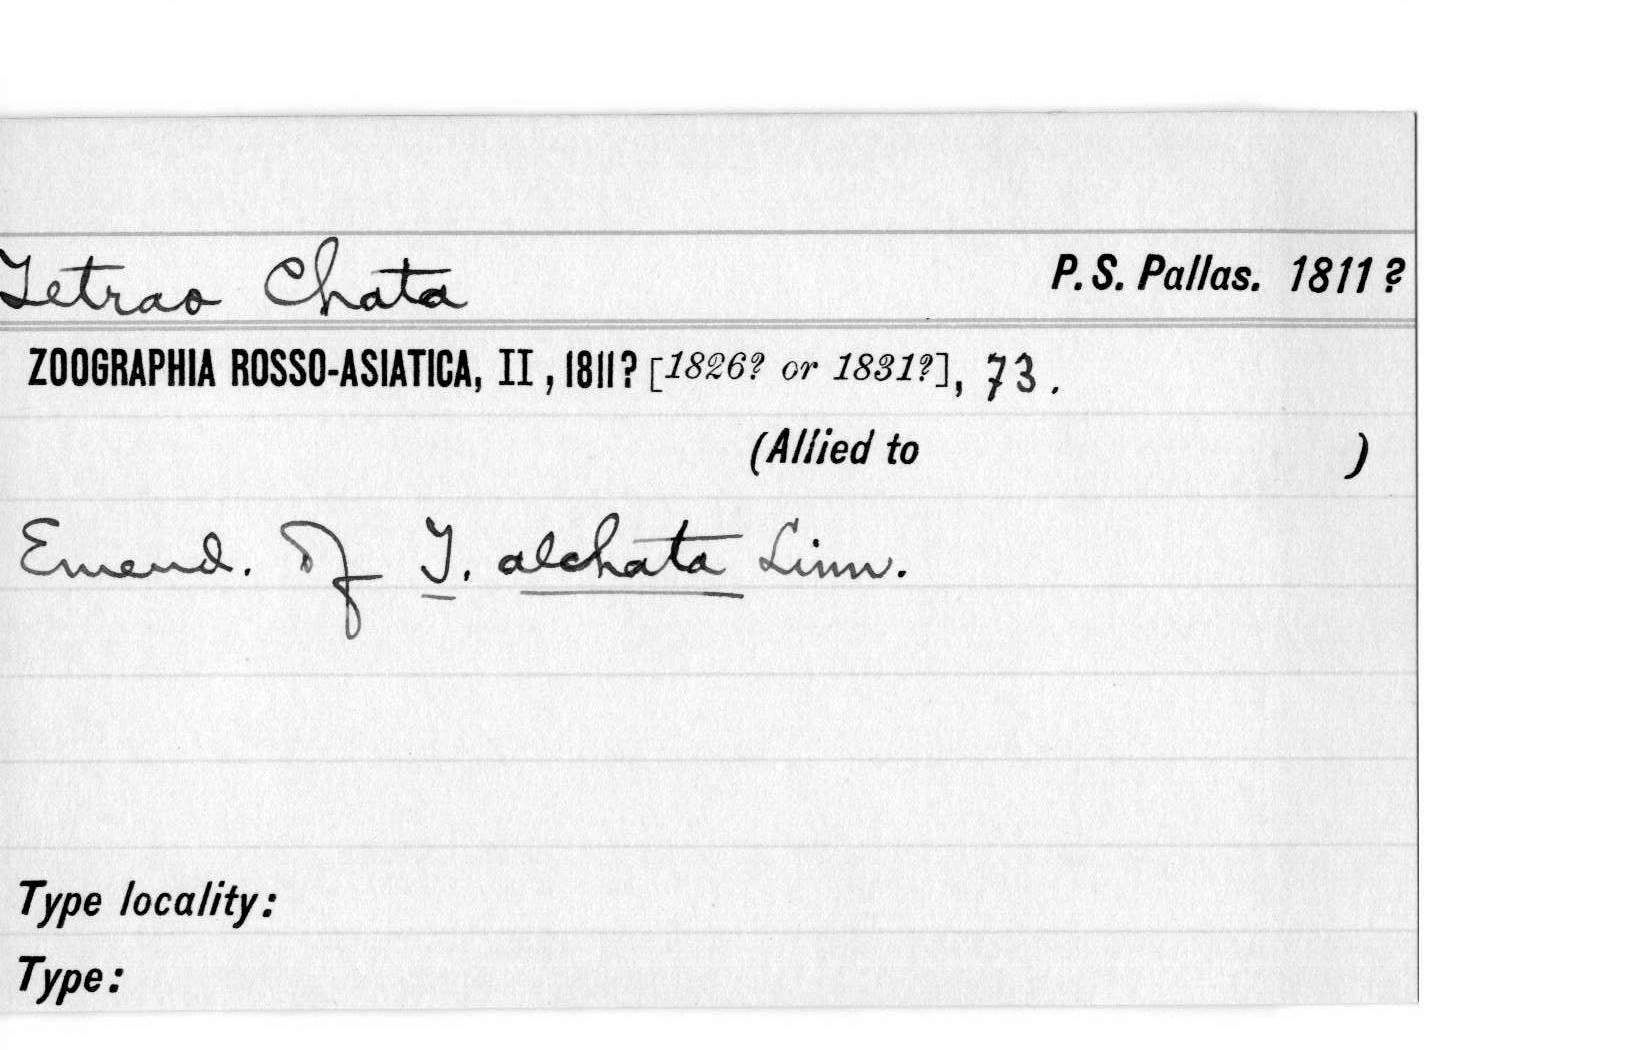 Tetrao Chata P. S. Pallas. 1811?
ZOOGRAPHIA ROSSO-ASIATICA, II, 1811? [1826? or 1831?], 73.
(Allied to )
Emend. Of T. alchata Linn.
Type locality:
Type: